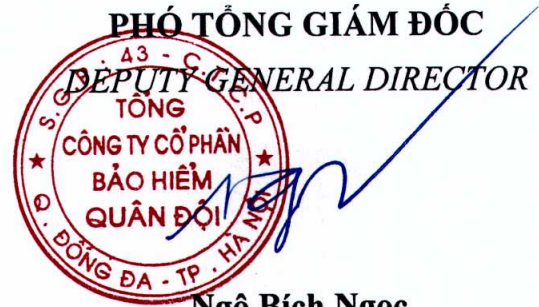 PHÓ TỔNG GIÁM ĐỐC
DEPUTY GENERAL DIRECTOR
43 - C.T.C.P
TỔNG
CÔNG TY CỔ PHẦN
BẢO HIỂM
QUÂN ĐỘI
Q. ĐỐNG ĐA - TP. HÀ NỘI
Ngô Bích Ngọc